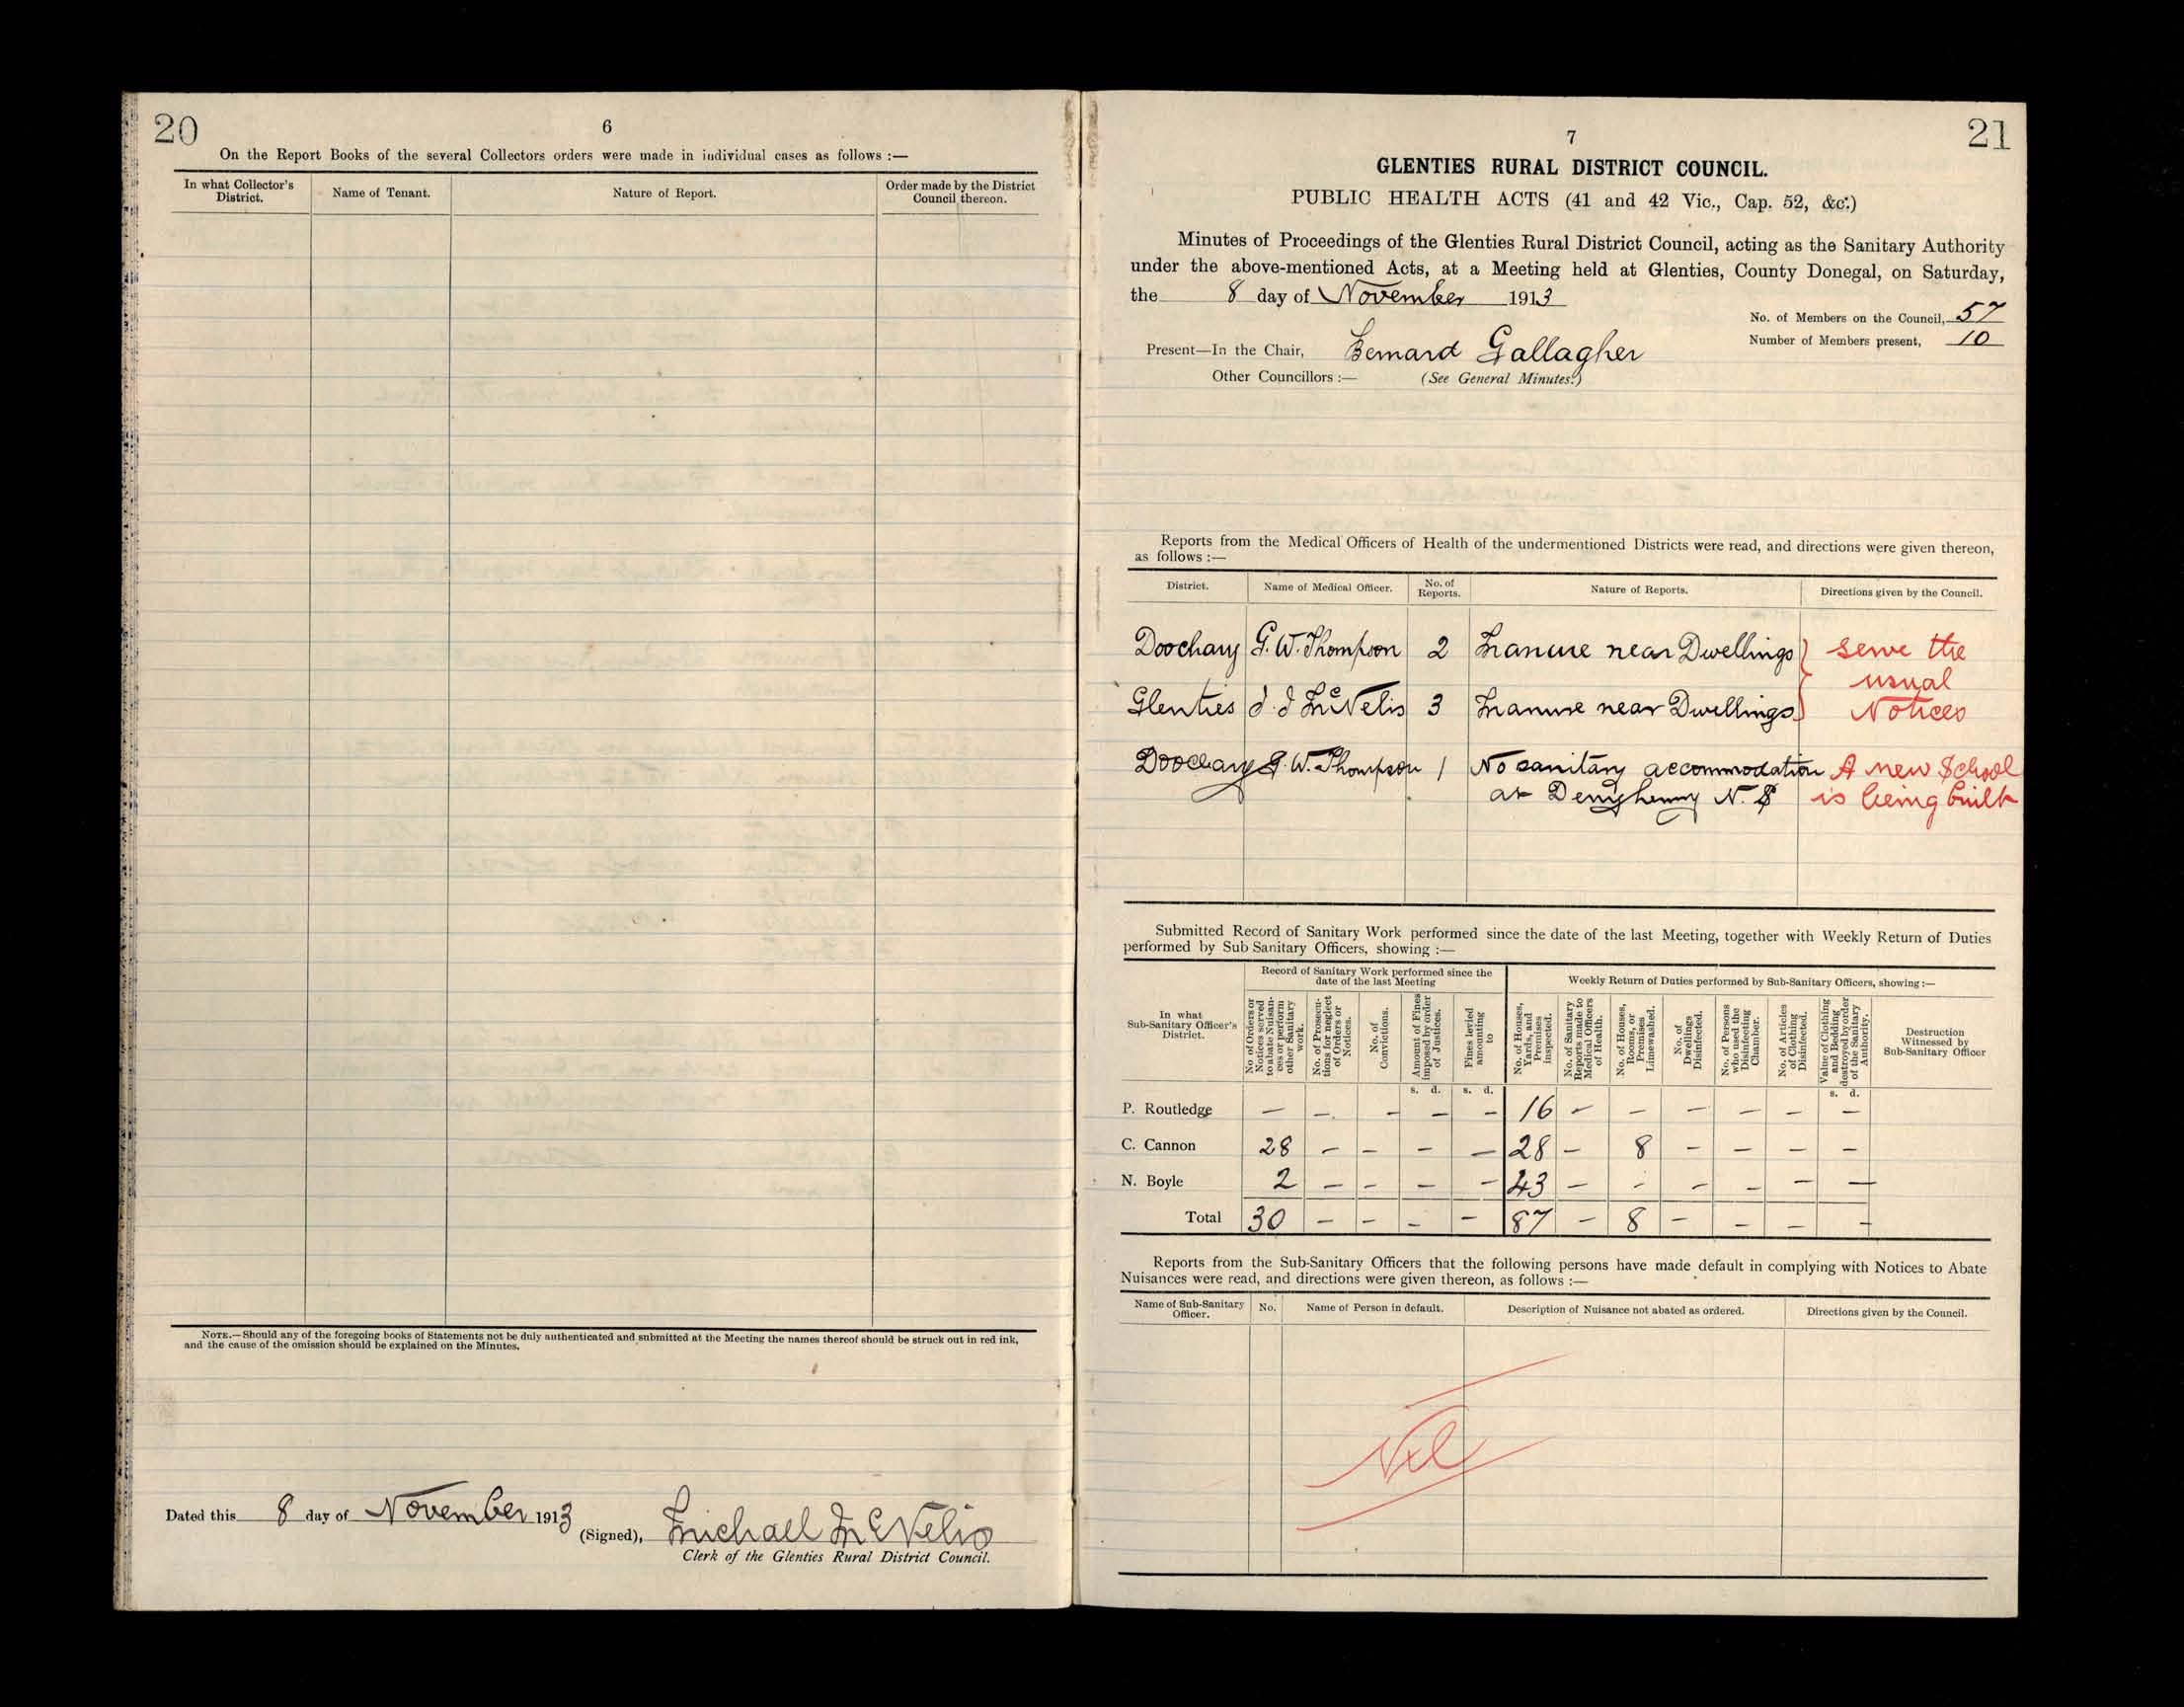 20
6
On the Report Books of the several Collectors orders were made in individual cases as follows :—
In what Collector's District. Name of Tenant. Nature of Report. Order made by the District Council thereon.
NOTE.—Should any of the foregoing books of Statements not be duly authenticated and submitted at the Meeting the names thereof should be struck out in red ink,
and the cause of the omission should be explained on the Minutes.
Dated this 8 day of November 1913
(Signed), Michael McNelis
Clerk of the Glenties Rural District Council.
21
7
GLENTIES RURAL DISTRICT COUNCIL.
PUBLIC HEALTH ACTS (41 and 42 Vic., Cap. 52, &c.)
Minutes of Proceedings of the Glenties Rural District Council, acting as the Sanitary Authority
under the above-mentioned Acts, at a Meeting held at Glenties, County Donegal, on Saturday,
the 8 day of November 1913
No. of Members on the Council, 57
Number of Members present, 10
Present—In the Chair, Bernard Gallagher
Other Councillors :— (See General Minutes.)
Reports from the Medical Officers of Health of the undermentioned Districts were read, and directions were given thereon,
as follows :—
District. Name of Medical Officer. No. of Reports. Nature of Reports. Directions given by the Council.
Doochary G. W. Thompson 2 Manure near Dwellings } serve the
usual
Glenties J. J. McNelis 3 Manure near Dwellings } Notices
Doochary G. W. Thompson 1 No sanitary accommodation A new School
at N. S is being built
Submitted Record of Sanitary Work performed since the date of the last Meeting, together with Weekly Return of Duties
performed by Sub Sanitary Officers, showing :—
In what Sub-Sanitary Officer's District.
Record of Sanitary Work performed since the date of the last Meeting
Weekly Return of Duties performed by Sub-Sanitary Officers, showing :—
No of Orders or Notices served to abate Nuisances or perform other Sanitary work.
No. of Prosecutions for neglect of Orders or Notices.
No. of Convictions.
Amount of Fines imposed by order of Justices.
Fines levied amounting to
No. of Houses, Yards, and Premises inspected.
No. of Sanitary Reports made to Medical Officers of Health.
No. of Houses, Rooms, or Premises Limewashed.
No. of Dwellings Disinfected.
No. of Persons who used the Disinfecting Chamber.
No. of Articles of Clothing Disinfected.
Value of Clothing and Bedding destroyed by order of the Sanitary Authority.
Destruction Witnessed by Sub-Sanitary Officer
s. d. s. d. s. d.
P. Routledge — — — — — 16 — — — — — —
C. Cannon 28 — — — — 28 — 8 — — — —
N. Boyle 2 — — — — 43 — — — — — —
Total 30 — — — — 87 — 8 — — — —
Reports from the Sub-Sanitary Officers that the following persons have made default in complying with Notices to Abate
Nuisances were read, and directions were given thereon, as follows :—
Name of Sub-Sanitary Officer. No. Name of Person in default. Description of Nuisance not abated as ordered. Directions given by the Council.
Nil